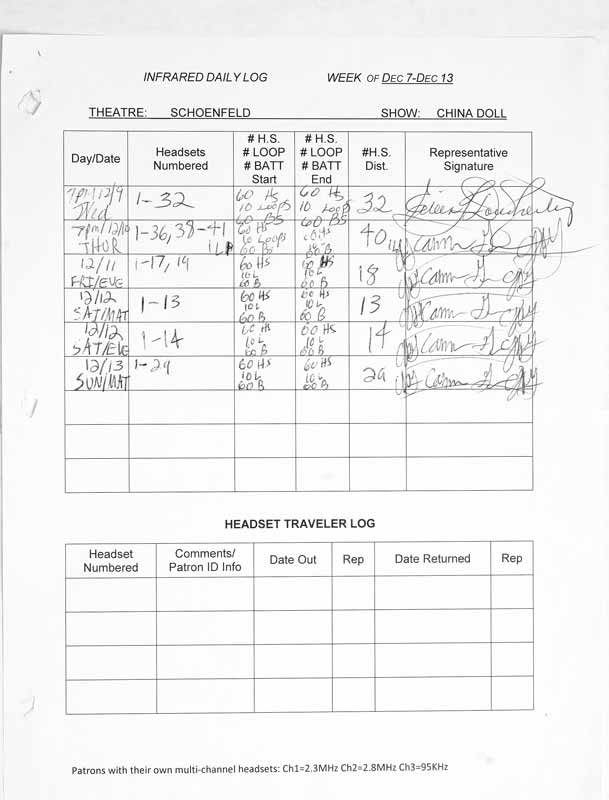 INFRARED DAILY LOG WEEK OF DEC 7-DEC 13
THEATRE: SCHOENFELD SHOW: CHINA DOLL
Day/Date
Headsets
Numbered
# H.S.
# LOOP
# BATT
Start
# H.S.
# LOOP
# BATT
End
#H.S.
Dist.
Representative
Signature
7pm 12/9
Wed
1-32
60 HS
10 Loops
60 BS
60 HS
10 Loops
60 BS
32
7pm/12/10
THUR
1-36, 38-41
1LP
60 HS
10 Loops
60 B
60 HS
60 B
40
12/11
FRI/EVE
1-17, 19
60 HS
10L
60B
60 HS
10L
60B
18
12/12
SAT/MAT
1-13
60 HS
10L
60B
60 HS
10L
60B
13
12/12
SAT/EVE
1-14
60 HS
10L
60B
60HS
10L
60B
14
12/13
SUN/MAT
1-29
60HS
10L
60B
60HS
10L
60B
29
HEADSET TRAVELER LOG
Headset
Numbered
Comments/
Patron ID Info
Date Out
Rep
Date Returned
Rep
Patrons with their own multi-channel headsets: Ch1=2.3MHz Ch2=2.8MHz Ch3=95KHz